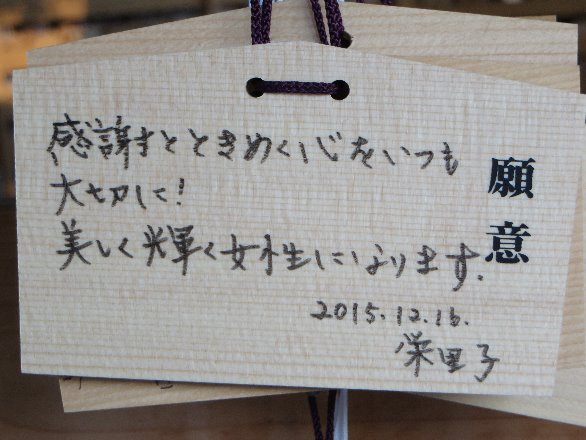 感謝すとときめく心をいつも
大切に!
美しく輝く女性になります.
2015.12.16.
栄里子
願意